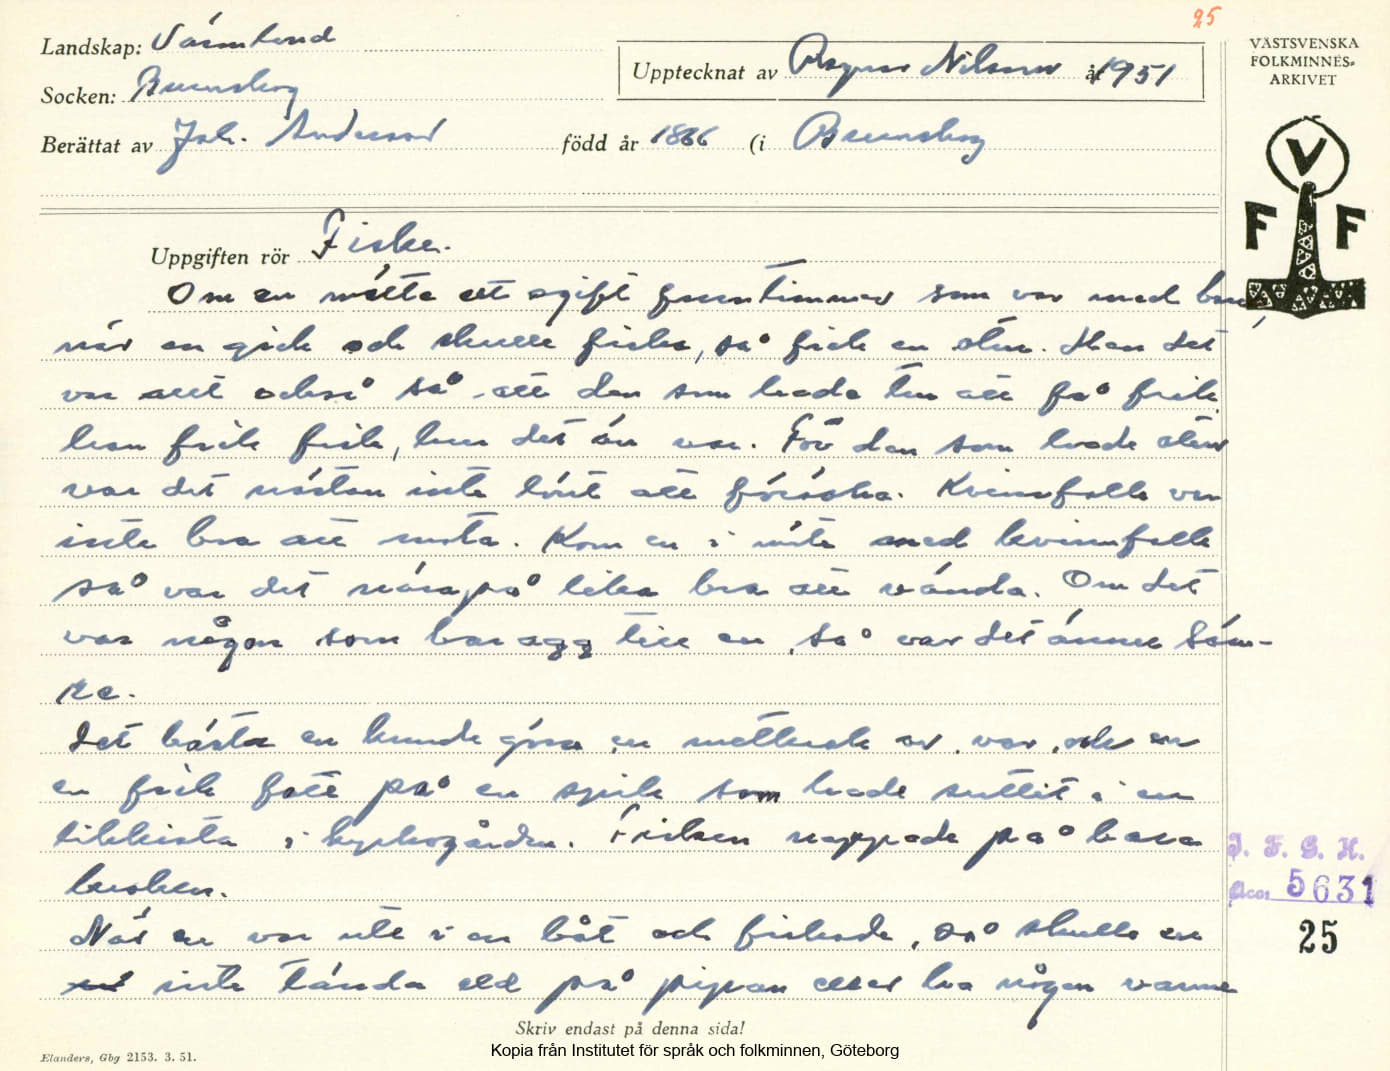 25
Landskap: Värmland
Socken: Brunskog
Berättat av Joh. Andersson född år 1866 (i Brunskog
Upptecknat av Ragnar Nilsson år 1951
VÄSTSVENSKA
FOLKMINNES-
ARKIVET
V
F F
Uppgiften rör Fiske.
Om en mötte ett ogift fruntimmer som var med barn,
när en gick och skulle fiska, så fick en otur. Men det
var allt också så att den som hade tur att få fisk
han fick fisk, hur det än var. För den som hade otur
var det nästan inte lönt att försöka. Kvinnfolk var
inte bra att möta. Kom en i möte med kvinnfolk
så var det närapå lika bra att vända. Om det
var någon som bar agg till en, så var det ännu säm-
re.
Det bästa en kunde göra en metkrok av var, och en
en fick fatt på en spik som hade suttit i en
likkista i kyrkogården. Fisken nappade på bara
kroken.
När en var ute i en båt och fiskade, så skulle en
inte tända eld på pipan eller ha någon varme
I. F. G. H.
Acc. 5631
25
Skriv endast på denna sida!
Elanders, Gbg 2153. 3. 51.
Kopia från Institutet för språk och folkminnen, Göteborg